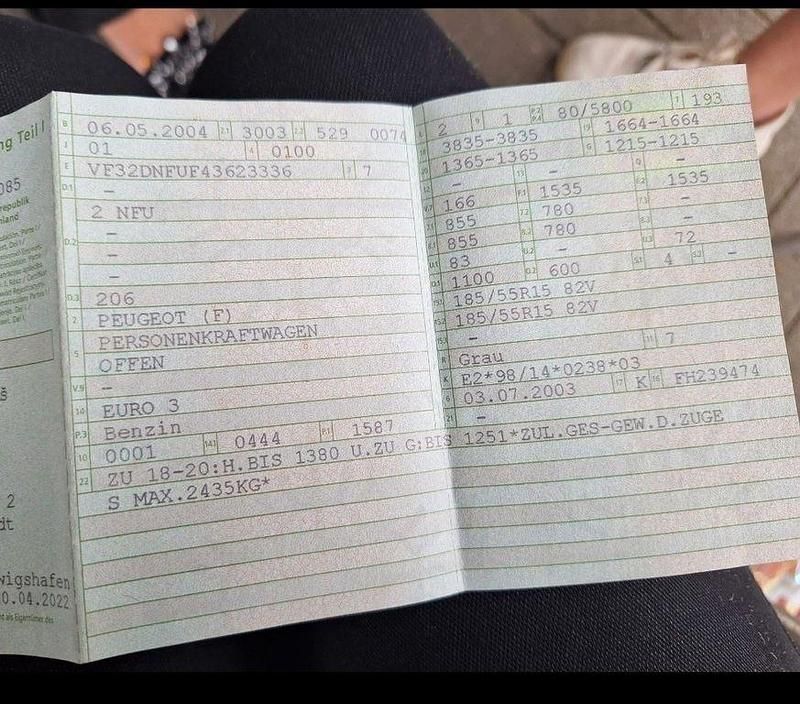 ng Teil I
085
republik
land
š
2
dt
wigshafen
0.04.2022
B 06.05.2004 2.1 3003 2.2 529 0074
J 01 4 0100
E VF32DNFUF43623336 3 7
D.1 –
2 NFU
–
D.2 –
–
D.3 206
2 PEUGEOT (F)
5 PERSONENKRAFTWAGEN
OFFEN
V.9 –
14 EURO 3
P.3 Benzin
10 0001 14.1 0444 P.1 1587
22 ZU 18-20:H.BIS 1380 U.ZU G:BIS 1251*ZUL.GES-GEW.D.ZUGE
S MAX.2435KG*
L 2 9 1 P.2 P.4 80/5800 T 193
18 3835-3835 19 1664-1664
20 1365-1365 G 1215-1215
12 – 13 – Q –
V.7 166 F.1 1535 F.2 1535
7.1 855 7.2 780 7.3 –
8.1 855 8.2 780 8.3 –
U.1 83 U.2 – U.3 72
O.1 1100 O.2 600 S.1 4 S.2 –
15.1 185/55R15 82V
15.2 185/55R15 82V
15.3 –
R Grau 11 7
K E2*98/14*0238*03
6 03.07.2003 17 K 16 FH239474
21 –